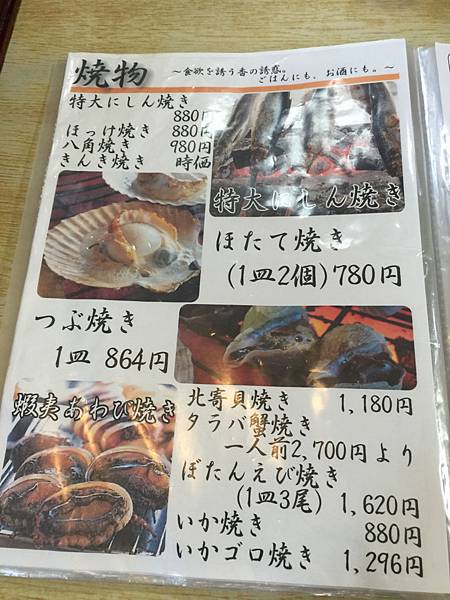 焼物
～食欲を誘う香の誘惑。
ごはんにも、お酒にも。～
特大にしん焼き
880円
ほっけ焼き 880円
八角焼き 980円
きんき焼き 時価
特大にしん焼き
ほたて焼き
(1皿2個)780円
つぶ焼き
1皿 864円
蝦夷あわび焼き
北寄貝焼き 1,180円
タラバ蟹焼き
一人前2,700円より
ぼたんえび焼き
(1皿3尾) 1,620円
いか焼き 880円
いかゴロ焼き 1,296円